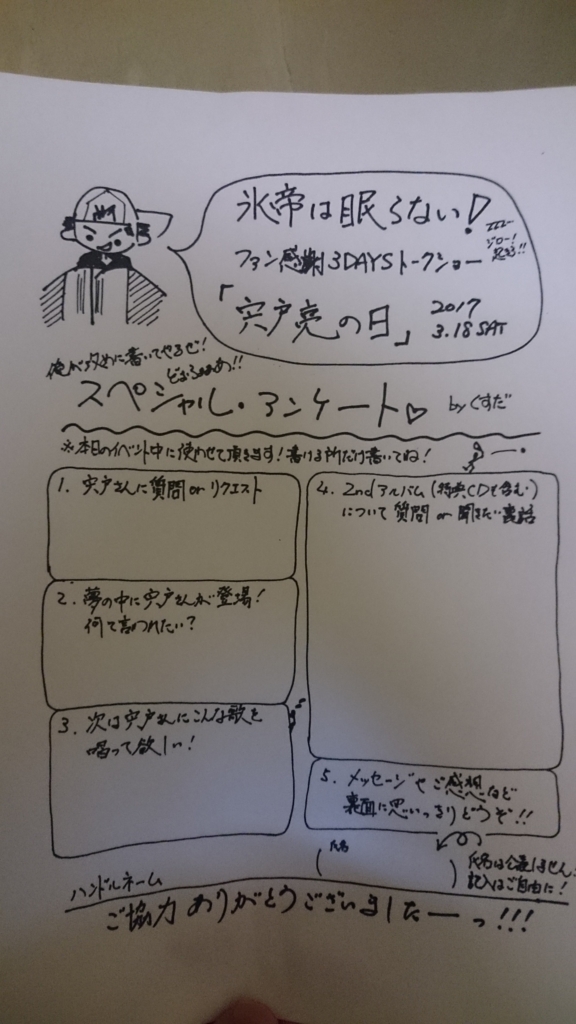 氷帝は眠らない!
zzz…
ジロー!
起きろ!!
ファン感謝3DAYSトークショー
「宍戸亮の日」
2017
3.18 SAT
俺が攻めに書いてやるぜ!
どおらぁぁあ!!
スペシャル・アンケート♡ byくすだ
※本日のイベント中に使わせて頂きます!書ける所だけ書いてね!
1. 宍戸さんに質問 or リクエスト
2. 夢の中に宍戸さんが登場!
何て言われたい?
3. 次は宍戸さんにこんな歌を
唱って欲しい!
4. 2ndアルバム(特典CDも含む)
について 質問 or 聞きたい裏話
5. メッセージやご感想など
裏面に思いっきりどうぞ!!
ハンドルネーム
氏名
( )
氏名は公表しません。
記入はご自由に!
ご協力ありがとうございましたーっ!!!